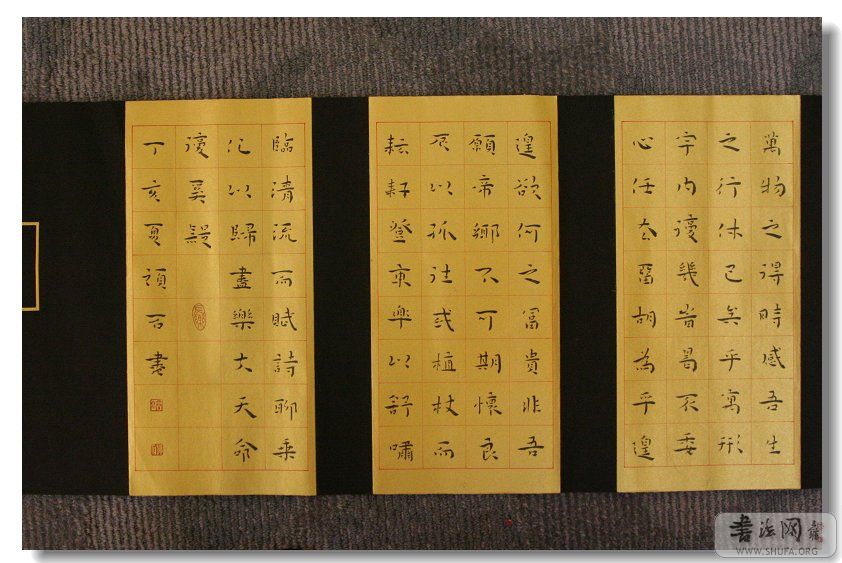 萬物之得時感吾生
之行休已矣乎寓形
宇内復幾時曷不委
心任去留胡為乎遑
遑欲何之富貴非吾
願帝鄉不可期懷良
辰以孤往或植杖而
耘耔登東皋以舒嘯
臨清流而賦詩聊乘
化以歸盡樂夫天命
復奚疑
丁亥夏 書
书法网
WWW.SHUFA.ORG